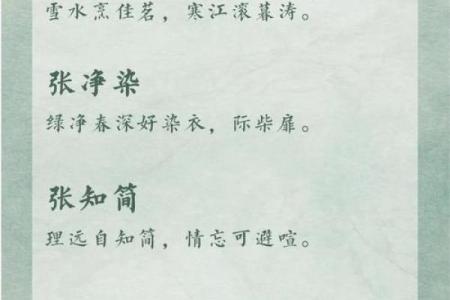 雪水烹佳茗，寒江滚暮涛。
张净染
绿净春深好染衣，际柴扉。
张知简
理远自知简，情忘可避喧。